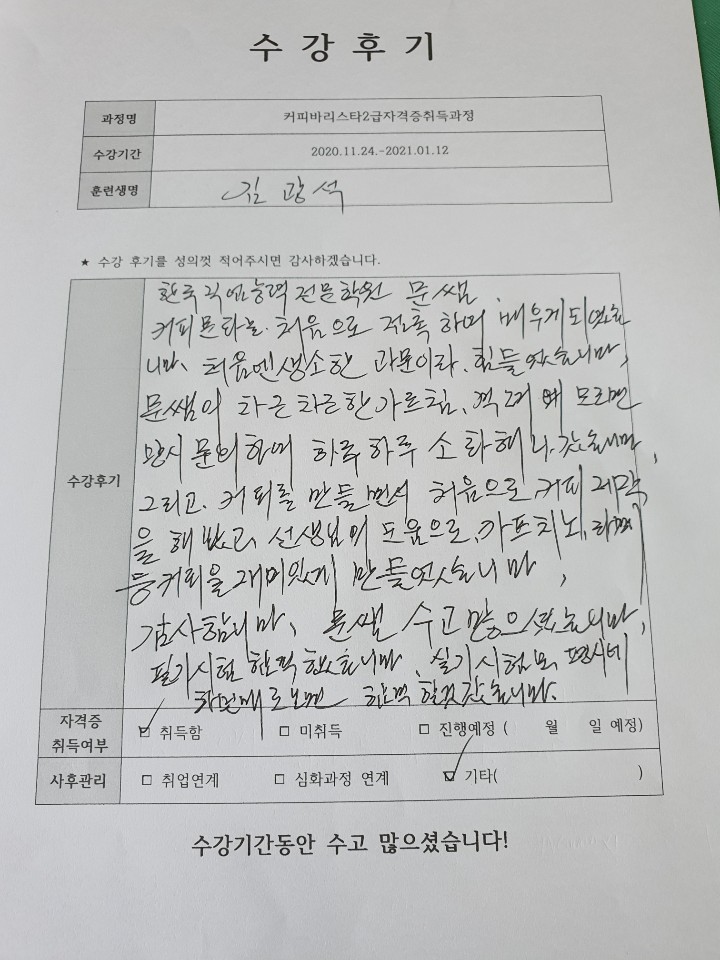 수강후기
과정명 커피바리스타2급자격증취득과정
수강기간 2020.11.24.-2021.01.12
훈련생명 김광석
★ 수강 후기를 성의껏 적어주시면 감사하겠습니다.
수강후기
한국직업능력전문학원 문쌤
커피문화를 처음으로 접촉하며 배우게되었습
니다. 처음엔생소한 과문이라, 힘들었습니다,
문쌤의 차근차근한가르침, 모르면
반시 문의하여 하루하루 소화해나갔습니다,
그리고, 커피를 만들면서 처음으로 커피제작
을 해봤고 선생님의 도움으로, 카프치노, 라떼
등커피을재미있게 만들었습니다,
감사합니다, 문쌤 수고많으셨습니다,
필기시험 합격했습니다, 실기시험도
합격할것같습니다.
자격증 취득여부 ☑ 취득함 □ 미취득 □ 진행예정 ( 월 일 예정)
사후관리 □ 취업연계 □ 심화과정 연계 ☑ 기타( )
수강기간동안 수고 많으셨습니다!